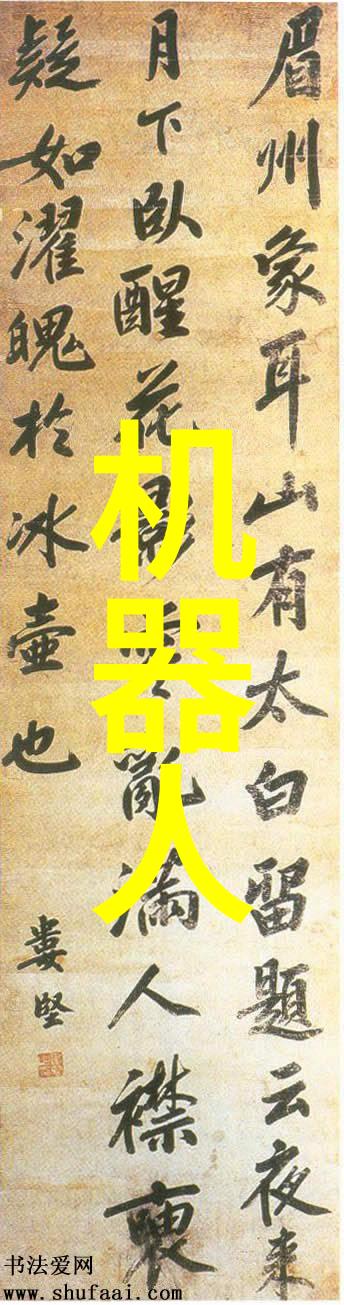 眉州象耳山有太白留題云夜来
月下臥醒花影零亂滿人襟
疑如濯魄於冰壺也
婁堅
机器人
书法爱网
www.shufaai.com